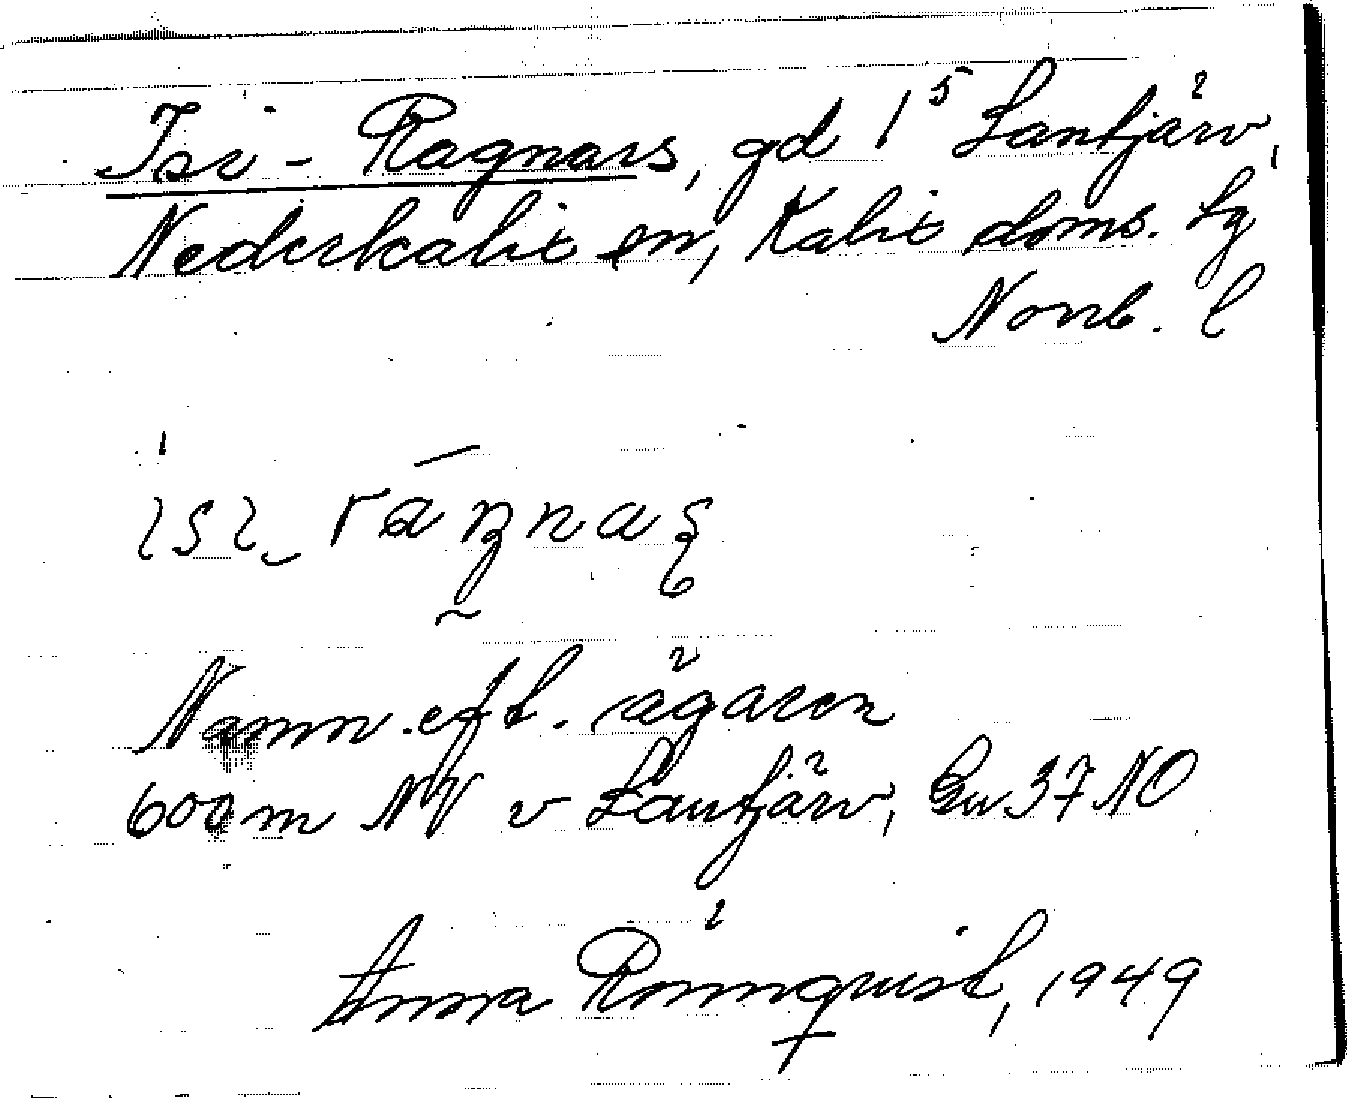 Isi-Ragnars, gd 1⁵ Lantjärv,
Nederkalix sn, Kalix doms. lg
Norrb. l
Namn eft. ägaren
600 m NV v Lantjärv, Gu 37 NO
Anna Rönnquist, 1949